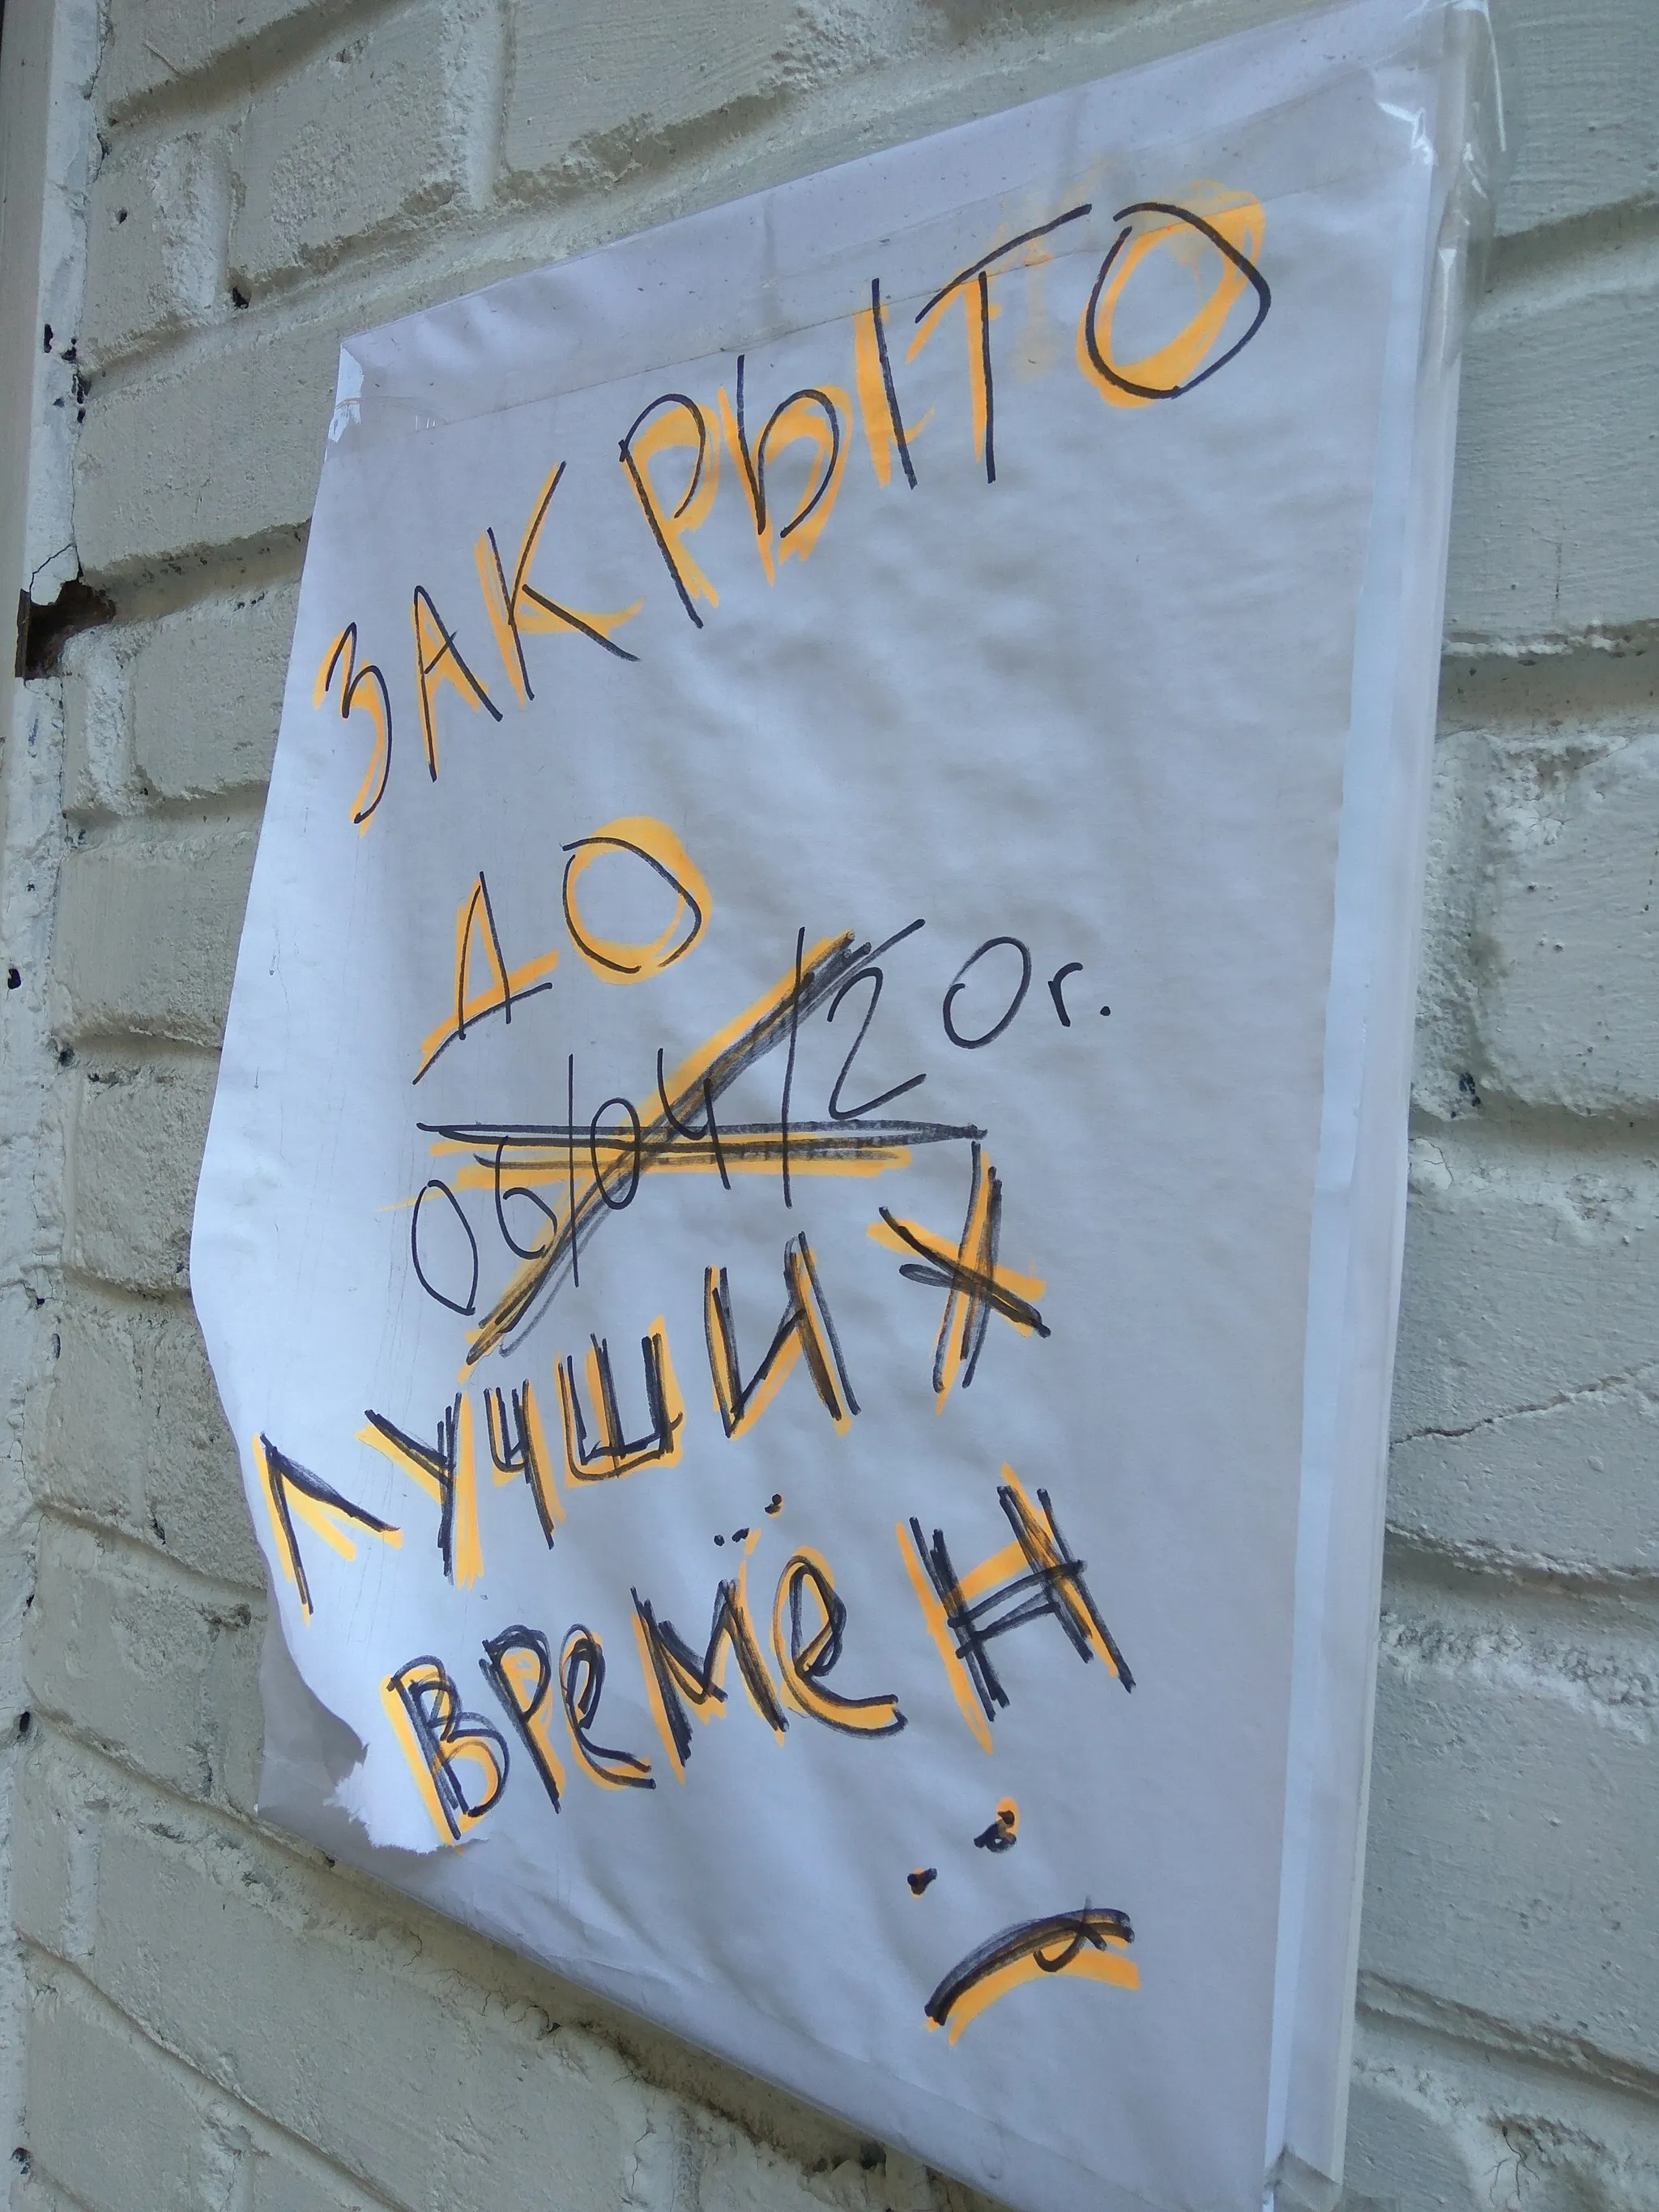 ЗАКРЫТО
ДО
06/04/20г.
ЛУЧШИХ
ВРЕМЁН